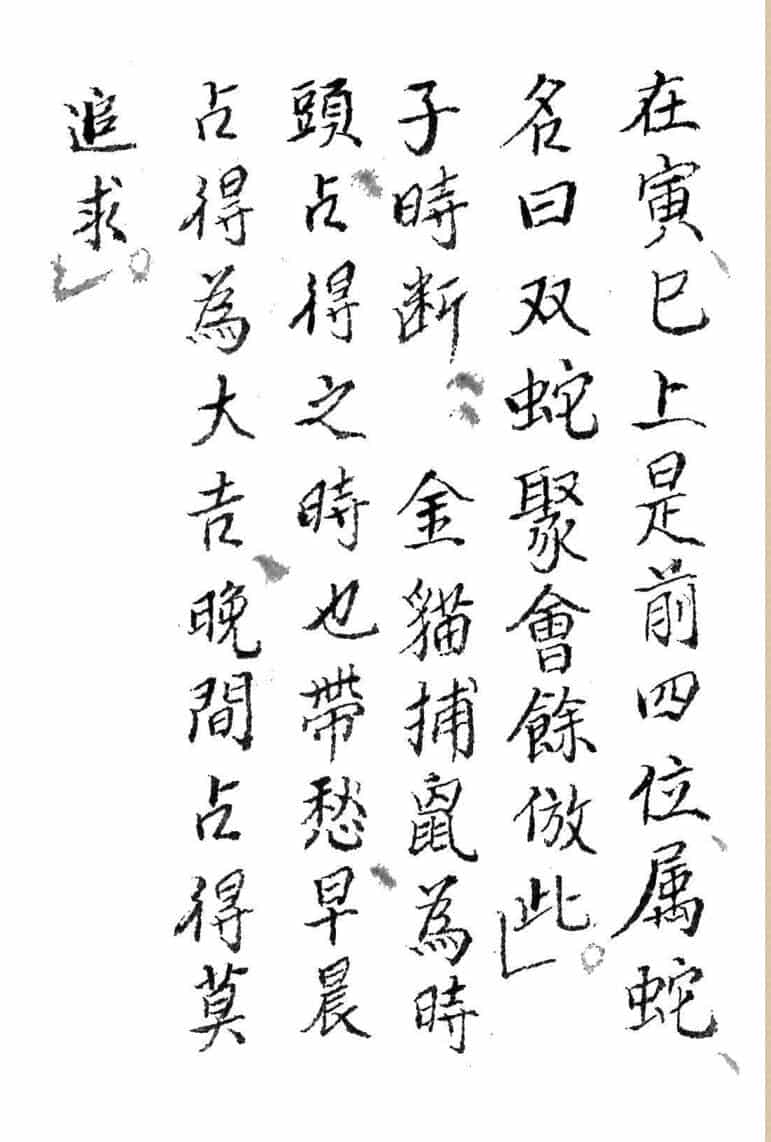 在寅巳上是前四位属蛇
名曰双蛇聚會餘倣此
子時断 金貓捕鼠為時
頭占得之時也帶愁早晨
占得為大吉晚間占得莫
追求